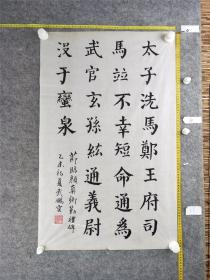 太子洗馬鄭王府司
馬竝不幸短命通為
武官玄孫紘通義尉
没于蠻泉
節臨顏真卿勤禮碑
乙未初夏